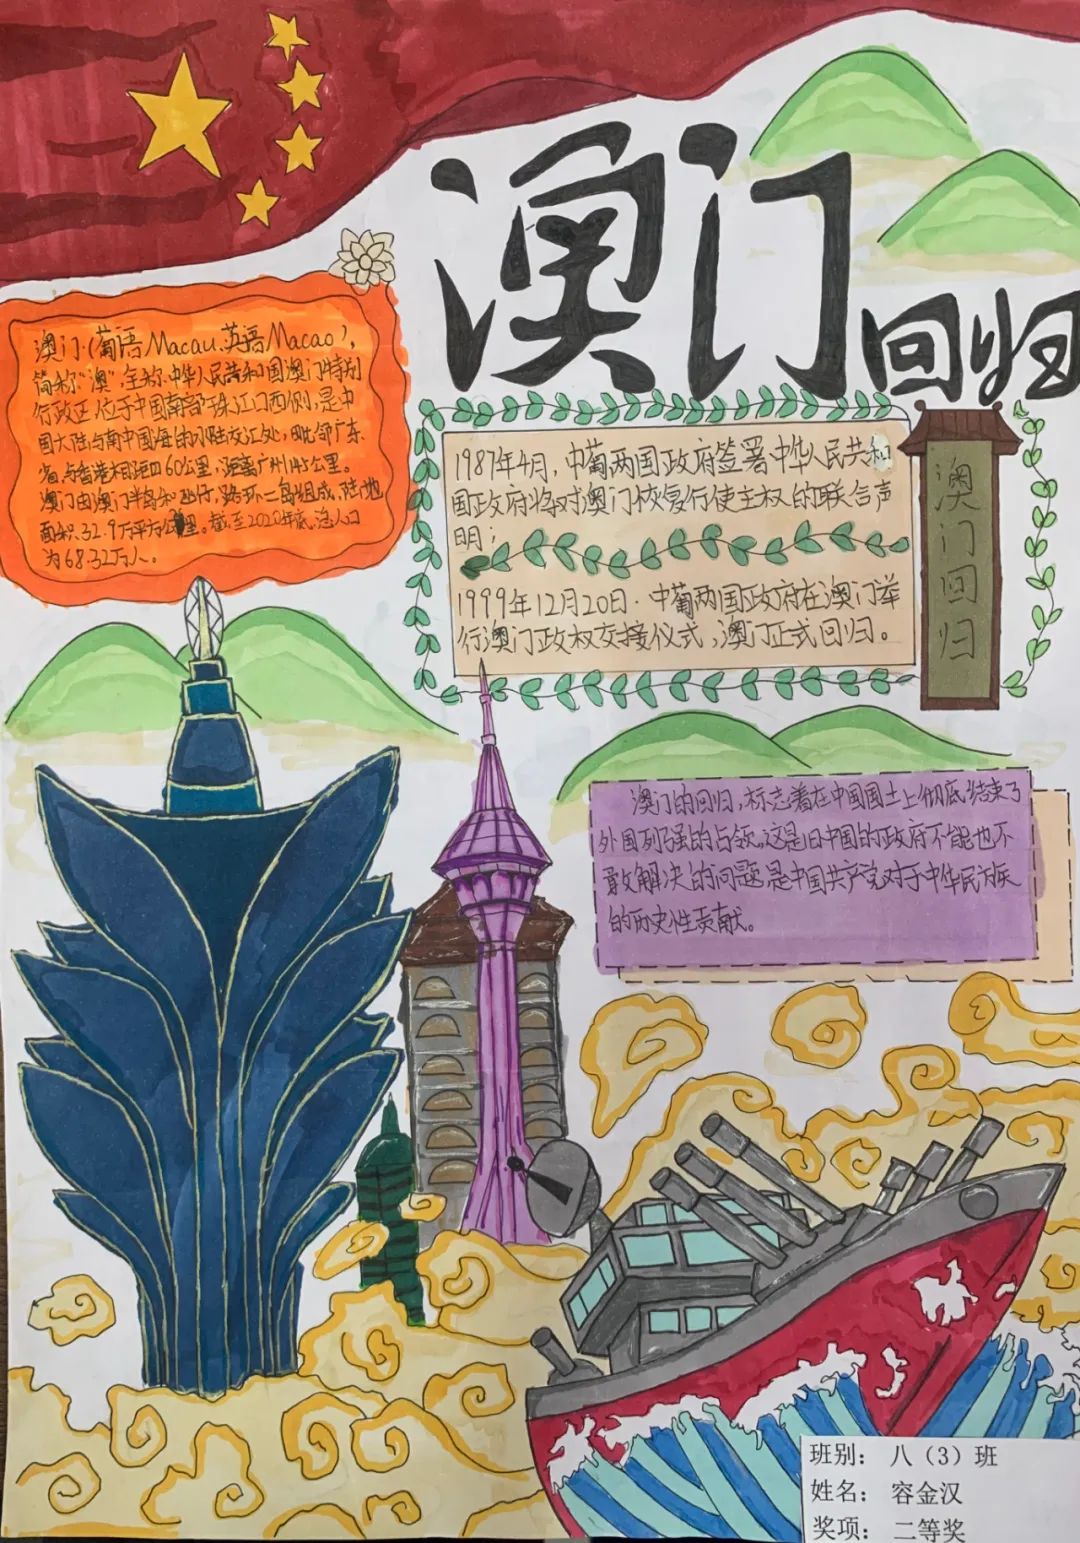 澳门
回归
澳门(葡语Macau、英语Macao),
简称“澳”,全称中华人民共和国澳门特别
行政区位于中国南部珠江口西侧,是中
国大陆与南中国海的水陆交汇处,毗邻广东
省,与香港相距四60公里,距离广州145公里。
澳门由澳门半岛和氹仔、路环二岛组成,陆地
面积32.9万平方公里。截至2020年底,总人口
为68.32万人。
1987年4月,中葡两国政府签署中华人民共和
国政府将对澳门恢复行使主权的联合声
明;
1999年12月20日.中葡两国政府在澳门举
行澳门政权交接仪式,澳门正式回归。
澳门回归
澳门的回归,标志着在中国国土上彻底结束了
外国列强的占领。这是旧中国的政府不能也不
敢解决的问题是中国共产党对于中华民族
的历史性贡献。
班别: 八(3)班
姓名: 容金汉
奖项: 二等奖